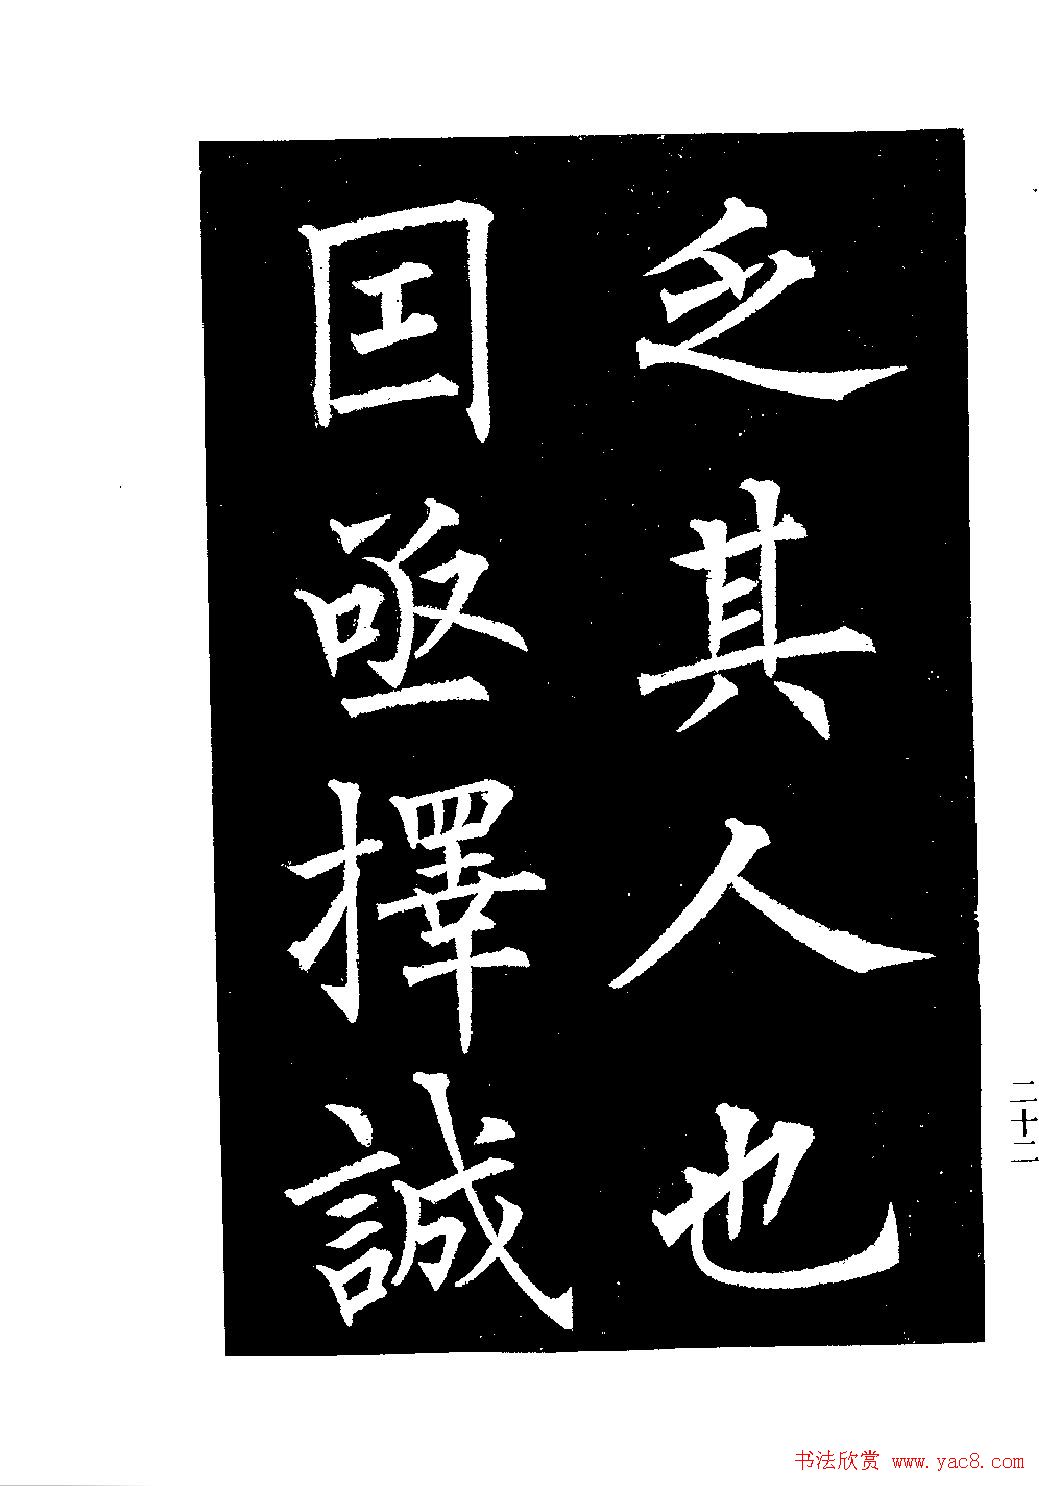 乏其人也
因亟擇誠
二十二
书法欣赏 www.yac8.com